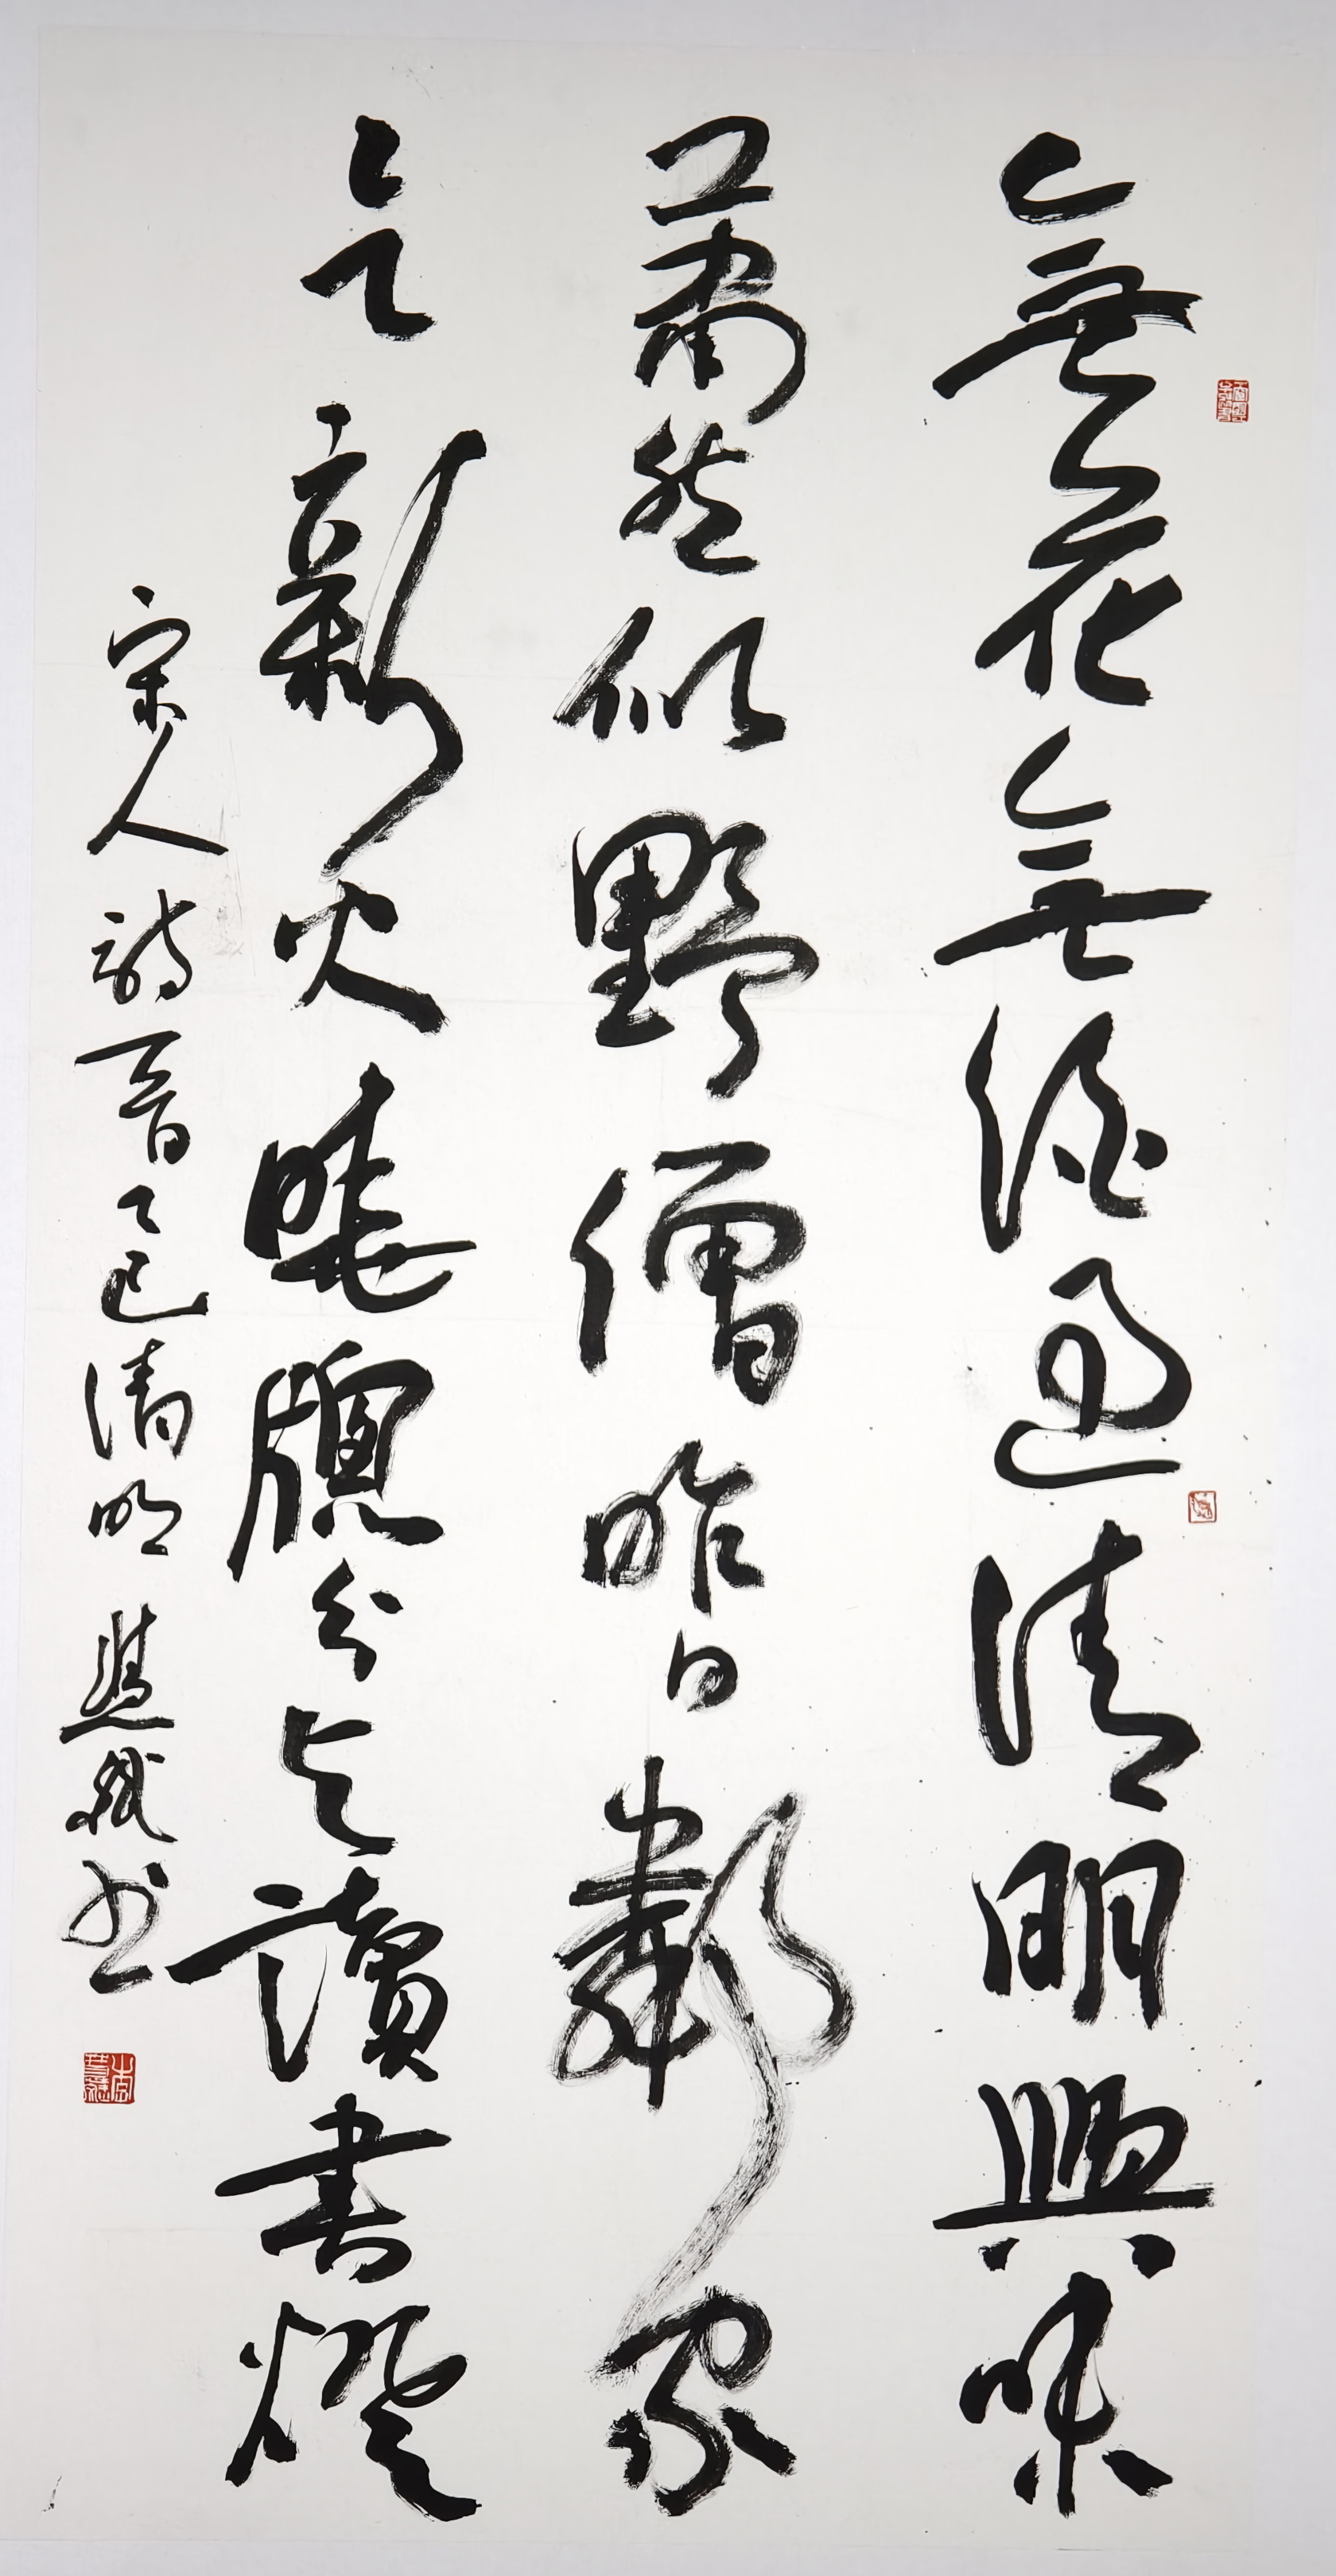 無花無酒過清明興味
蕭然似野僧昨日鄰家
乞新火曉牕分與讀書燈
宋人詩一首乙巳清明 書